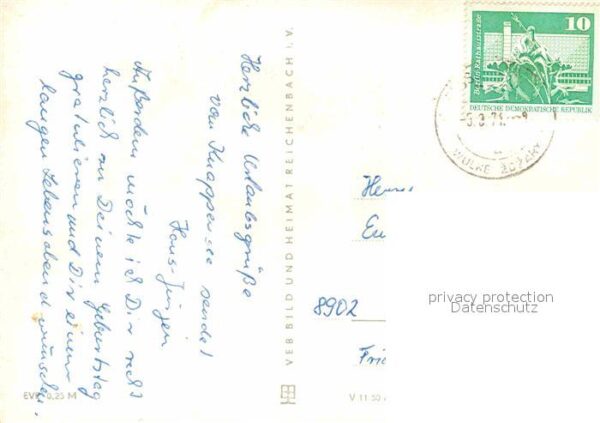 Herzliche Urlaubsgrüße
vom Knappensee sendet
Hans-Jürgen
Außerdem möchte ich Dir recht
herzlich zu Deinem Geburtstag
gratulieren und Dir einen
langen Lebensabend wünschen.
EVP 0,25 M
VEB BILD UND HEIMAT REICHENBACH I. V.
V 11 50
10
Berlin-Rathausstraße
DEUTSCHE DEMOKRATISCHE REPUBLIK
WULKE ZDŹARY
8902
privacy protection
Datenschutz